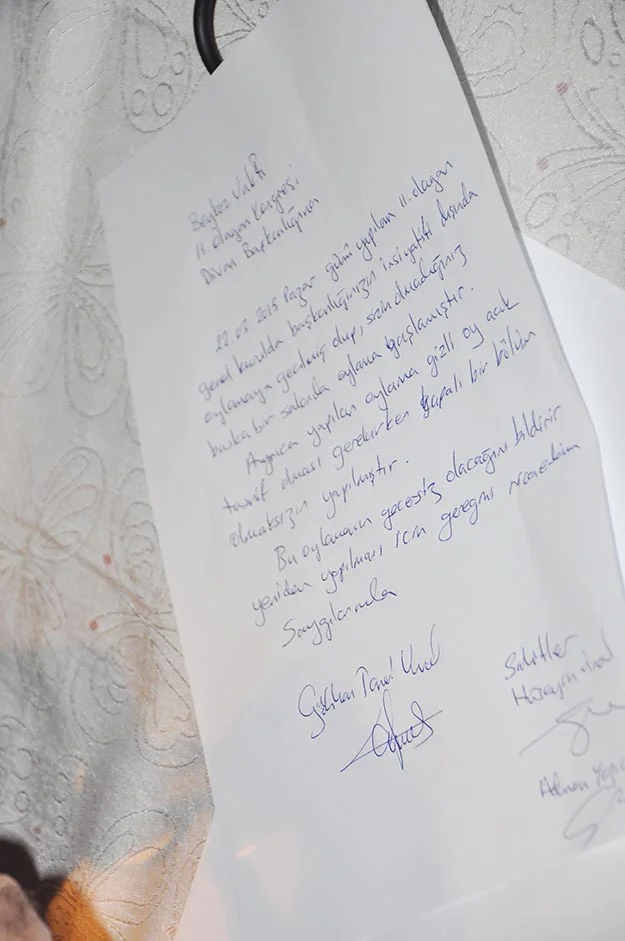 Beykoz Vakfı
11. olağan Kongresi
Divan Başkanlığına
22.03.2015 Pazar günü yapılan 11. olağan
genel kurulda başkanlığınızın insiyatifi dışında
oylamaya geçilmiş olup, sizin olmadığınız
başka bir salonda oylama başlamıştır.
Ayrıca yapılan oylama gizli oy açık
tasnif olması gerekirken kapalı bir bölüm
olmaksızın yapılmıştır.
Bu oylamanın geçersiz olacağını bildirir
yeniden yapılması için gereğini rica ederim
Saygılarımla
Gökhan Taner Ünal
Şahitler
Hüseyin
Adnan